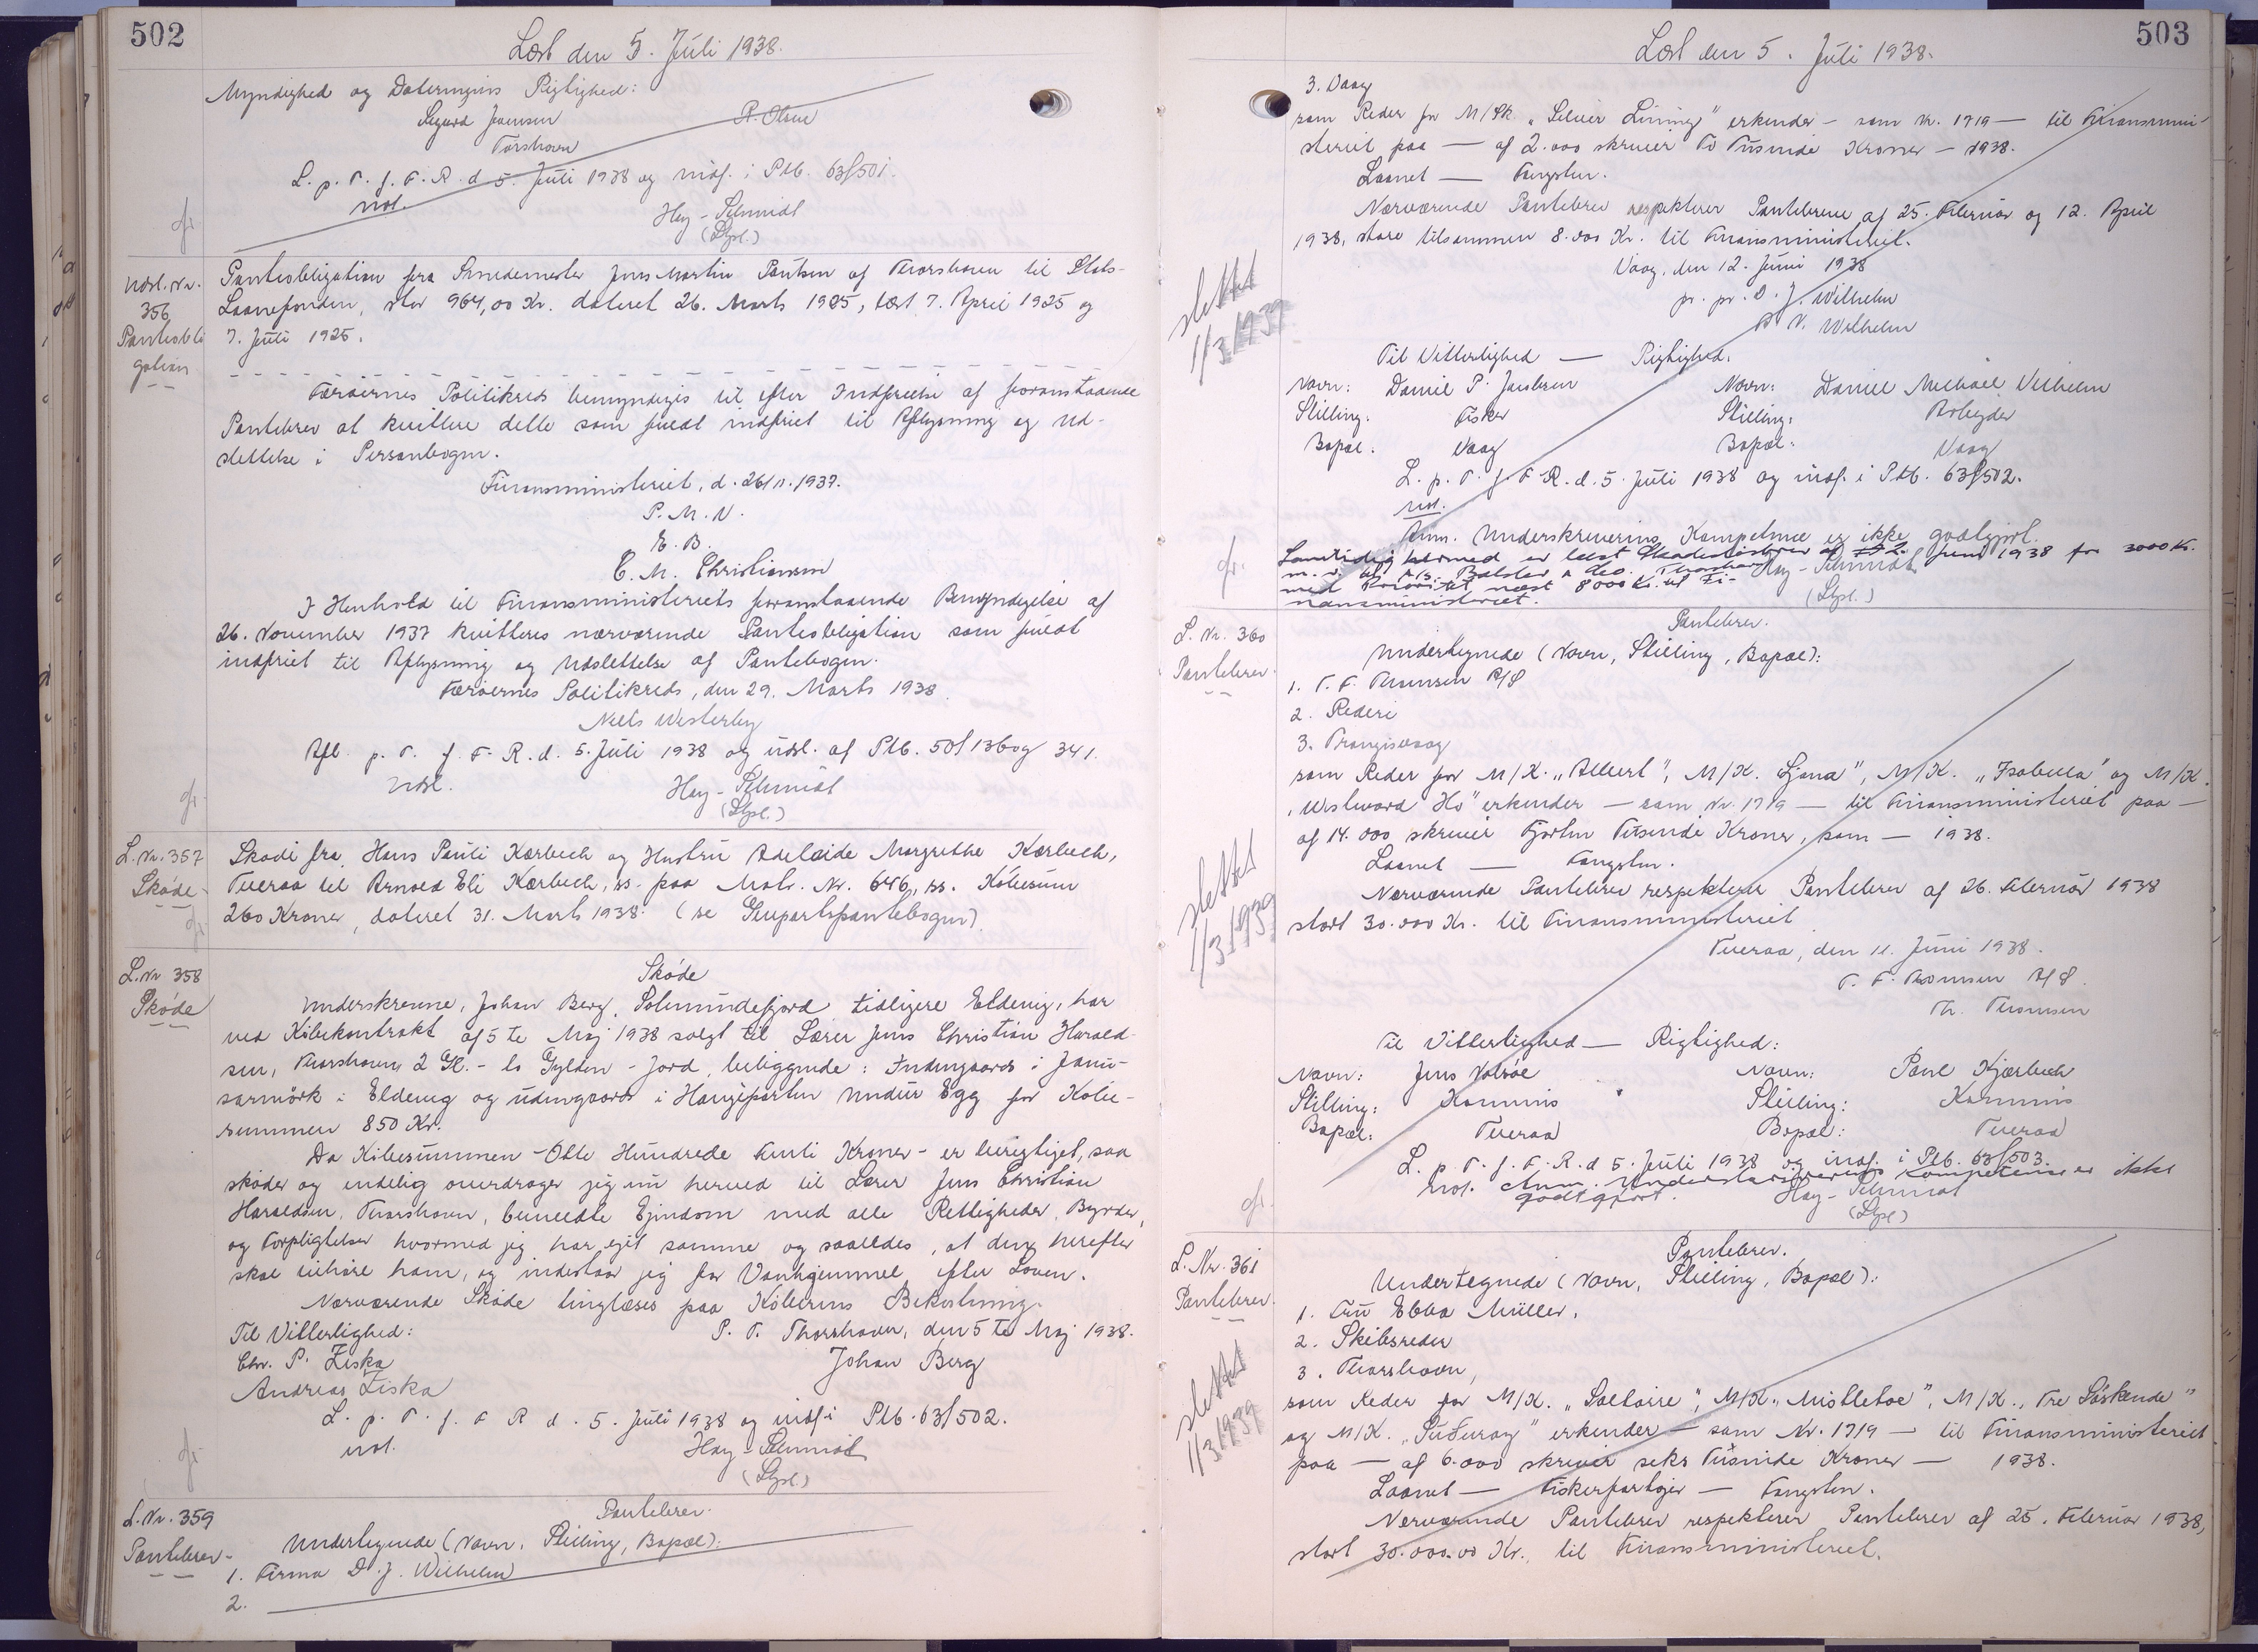 502
Læst den 5. Juli 1938.
Myndighed og Dateringens Rigtighed:
Sigurd Joensen R. Olsen
Torshavn
L. p. T. f. F. R. d. 5. Juli 1938 og indf. i Ptb. 63/501.
not.
Hey-Schmidt
(Stpl.)
Udsl. Nr.
356
Pantobli
gation
Pantobligation fra Smedemester Jens Martin Poulsen af Thorshavn til Stats-
Laanefonden, stor 964,00 Kr. dateret 26. Marts 1925, læst 7. April 1925 og
7. Juli 1925.
Færøernes Politikreds bemyndiges til efter Indfrielse af foranstaaende
Pantebrev at kvittere dette som fuldt indfriet til Aflysning og Ud-
slettelse i Personbogen.
Finansministeriet, d. 26/11. 1937.
P. M. V.
E. B.
C. M. Christiansen
I Henhold til Finansministeriets foranstaaende Bemyndigelse af
26. November 1937 kvitteres nærværende Pantobligation som fuldt
indfriet til Aflysning og Udslettelse af Pantebogen.
Færøernes Politikreds, den 29. Marts 1938.
Niels Westerby
Afl. p. T. f. F. R. d. 5. Juli 1938 og udsl. af Ptb. 50/136 og 341.
Udsl. Hey-Schmidt
(Stpl.)
L. Nr. 357
Skøde
Skøde fra Hans Pauli Kærbech og Hustru Adelaide Margrethe Kærbech,
Tveraa til Arnold Eli Kærbech, ss. paa Matr. Nr. 646, ss. Købesum
260 Kroner, dateret 31. Marts 1938. (se Genpartspantebogen).
L. Nr 358
Skøde
Skøde
Underskrevne, Johan Berg, Solmundefjord tidligere Eldevig, har
ved Købekontrakt af 5te Maj 1938 solgt til Lærer Jens Christian Harald-
sen, Thorshavn 2 Gl. - to Gylden - Jord, beliggende: Indengaards i Janu-
sarmörk i Eldevig og udengaards i Haugeparten undur Egg for Købe-
summen 850 Kr.
Da Købesummen - Otte Hundrede Femti Kroner - er berigtiget, saa
skøder og endelig overdrager jeg nu herved til Lærer Jens Christian
Haraldsen, Thorshavn, bemeldte Ejendom med alle Rettigheder, Byrder
og Forpligtelser hvormed jeg har ejet samme og saaledes, at den herefter
skal tilhøre ham, og indestaar jeg for Vanhjemmel efter Loven.
Nærværende Skøde tinglæses paa Køberens Bekostning.
Til Vitterlighed: P. T. Thorshavn, den 5te Maj 1938.
Chr. P. Ziska Johan Berg
Andreas Ziska
L. p. T. f. F R d. 5. Juli 1938 og indf. i Ptb. 63/502.
not. Hey-Schmidt
(Stpl.)
L. Nr. 359
Pantebrev
Pantebrev.
Undertegnede (Navn, Stilling, Bopæl):
1. Firma D. J. Wilhelm
2.
503
Læst den 5. Juli 1938.
3. Vaag
som Reder for M/Sk. „Silver Lining" erkender - som Nr. 1719 - til Finansmini-
steriet paa - af 2.000 skriver To Tusinde Kroner - 1938.
Laanet - Fangsten.
Nærværende Pantebrev respekterer Pantebreve af 25. Februar og 12. April
1938, store tilsammen 8.000 Kr. til Finansministeriet.
Vaag, den 12. Juni 1938
pr. pr. D. J. Wilhelm
P. V. Wilhelm
slettet
1/3 1939
Til Vitterlighed - Rigtighed.
Navn: Daniel P. Jacobsen Navn: Daniel Michael Vilhelm
Stilling: Fisker Stilling: Arbejder
Bopæl. Vaag Bopæl: Vaag
L. p. T. f. F. R. d. 5. Juli 1938 og indf. i Ptb. 63/502.
not.
Anm. Underskriverens Kompetence er ikke godtgjort.
Samtidig hermed er læst Skadesløsbrev af Juni 1938 for 3000 Kr.
m. v. til A/S. Balslev & Co. Thorshavn
med Prioritet næst 8000 Kr. til Fi-
nansministeriet.
Hey-Schmidt
(Stpl.)
L. Nr. 360
Pantebrev
Pantebrev.
Undertegnede (Navn, Stilling, Bopæl):
1. T. F. Thomsen A/S
2. Rederi
3. Trangisvaag
som Reder for M/K. „Albert", M/K. Sjana", M/K. „Isabella" og M/K.
„Westward Ho" erkender - som Nr. 1719 - til Finansministeriet paa -
af 14.000 skriver Fjorten Tusinde Kroner, som - 1938.
Laanet - Fangsten.
Nærværende Pantebrev respekterer Pantebrev af 26. Februar 1938
stort 30.000 Kr. til Finansministeriet
Tveraa, den 11. Juni 1938.
T. F. Thomsen A/S.
Th. Thomsen
slettet
1/3 1939
Til Vitterlighed - Rigtighed:
Navn: Jens Navn: Poul Kjærbech
Stilling: Kommis Stilling: Kommis
Bopæl: Tveraa Bopæl: Tveraa
L. p. T. f. F. R. d 5. Juli 1938 og indf. i Ptb. 63/503.
not. Anm. Underskriverens Kompetence er ikke
godtgjort. Hey-Schmidt
(Stpl)
L. Nr. 361
Pantebrev.
Pantebrev.
Undertegnede (Navn, Stilling, Bopæl):
1. Fru Ebba Müller.
2. Skibsreder
3. Thorshavn,
som Reder for M/K. „Saltaire", M/K. „Mistletoe", M/K. „Tre Søskende"
og M/K. „Suđuroy" erkender - som Nr. 1719 - til Finansministeriet
paa - af 6.000 skriver seks Tusinde Kroner - 1938.
Laanet - Fiskerfartøjer - Fangsten.
Nærværende Pantebrev respekterer Pantebrev af 25. Februar 1938,
stort 30.000.00 Kr., til Finansministeriet.
slettet
1/3 1939